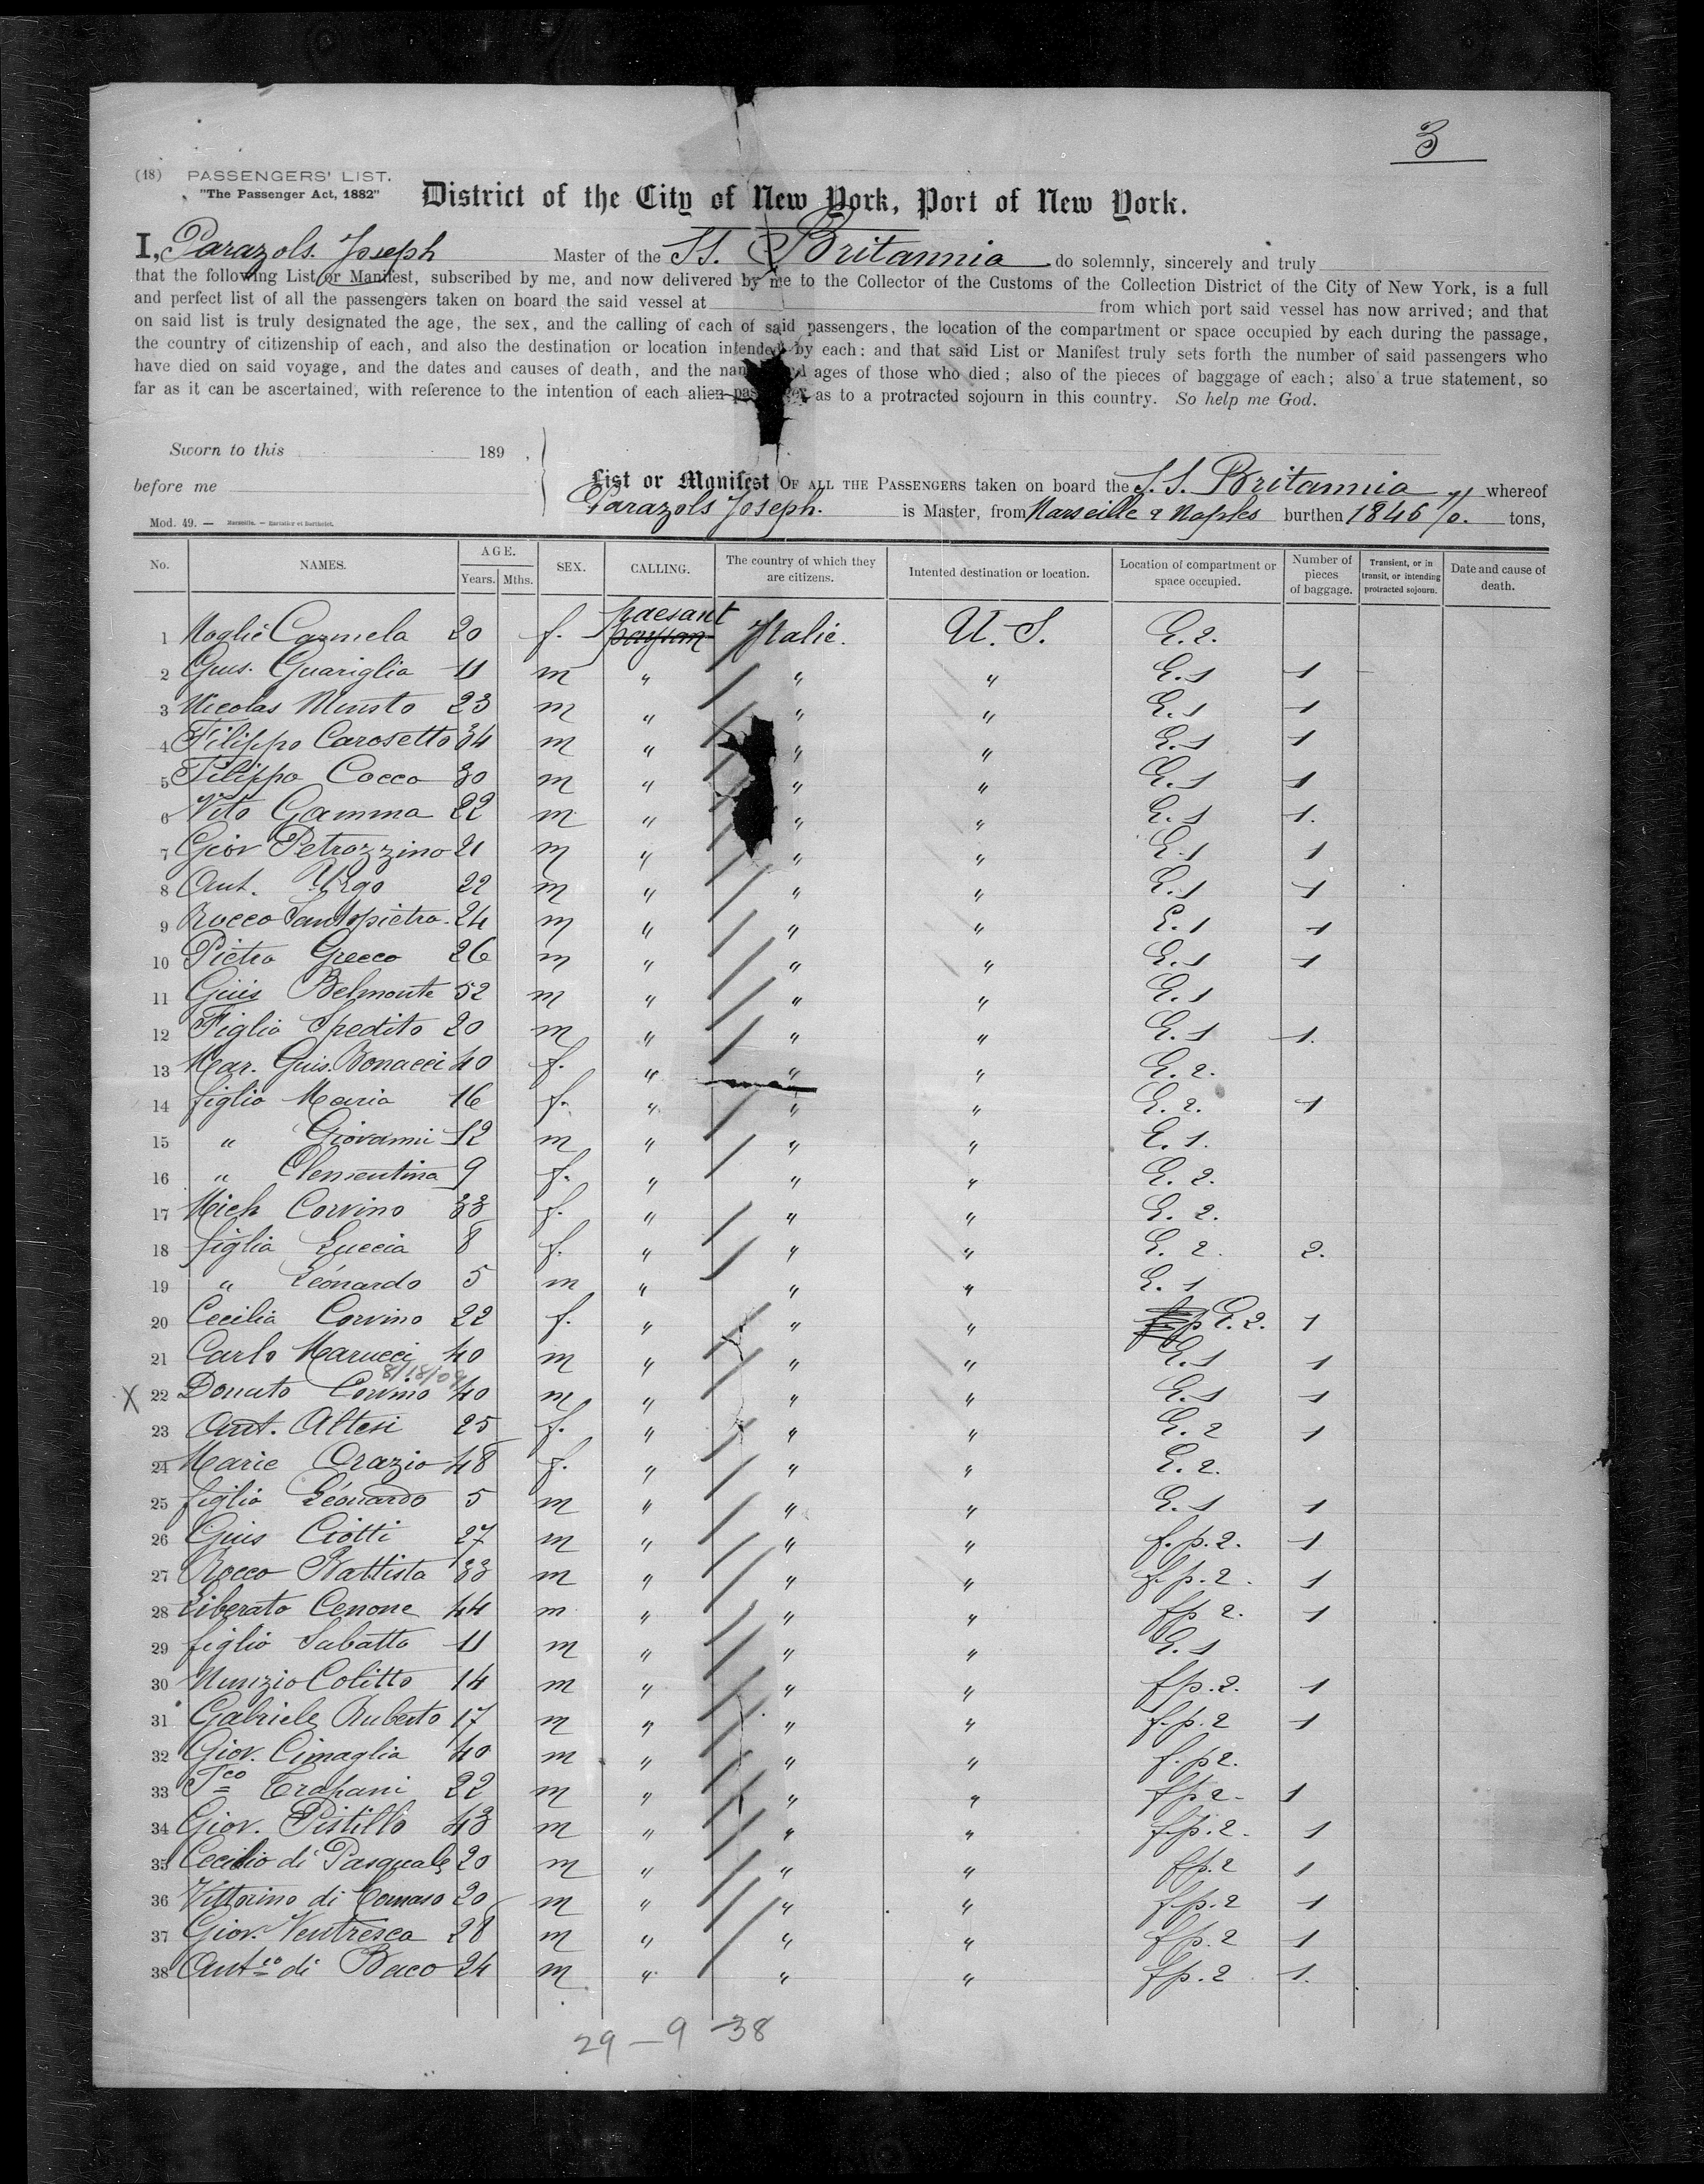 3
(18) PASSENGERS' LIST.
"The Passenger Act, 1882"
District of the City of New York, Port of New York.
I, Parazols. Joseph Master of the SS. Britannia do solemnly, sincerely and truly
that the following List or Manifest, subscribed by me, and now delivered by me to the Collector of the Customs of the Collection District of the City of New York, is a full
and perfect list of all the passengers taken on board the said vessel at from which port said vessel has now arrived; and that
on said list is truly designated the age, the sex, and the calling of each of said passengers, the location of the compartment or space occupied by each during the passage,
the country of citizenship of each, and also the destination or location intended by each: and that said List or Manifest truly sets forth the number of said passengers who
have died on said voyage, and the dates and causes of death, and the ages of those who died; also of the pieces of baggage of each; also a true statement, so
far as it can be ascertained, with reference to the intention of each alien as to a protracted sojourn in this country. So help me God.
Sworn to this 189 ,
before me
List or Manifest OF ALL THE PASSENGERS taken on board the S.S. Britannia whereof
Parazols Joseph. is Master, from Marseille & Naples burthen 1846 tons,
Mod. 49. — Marseille. — Barlatier et Barthelet.
No. NAMES. AGE. Years. Mths. SEX. CALLING. The country of which they are citizens. Intented destination or location. Location of compartment or space occupied. Number of pieces of baggage. Transient, or in transit, or intending protracted sojourn. Date and cause of death.
1 Moglie Carmela 20 f. paesant Italie. U. S. E. 2.
2 Gius. Guariglia 11 m " " " E. 1 1
3 Nicolas Minsto 23 m " " " E. 1 1
4 Filippo Carosetto 34 m " " " E. 1 1
5 Filippo Cocco 30 m " " " E. 1 1
6 Vito Gamma 22 m " " " E. 1 1.
7 Giov Petrozzino 21 m " " " E. 1 1
8 Ant. 22 m " " " E. 1 1
9 Rocco Santopietro. 24 m " " " E. 1 1
10 Pietro Greco 26 m " " " E. 1 1
11 Guis Belmonte 52 m " " " E. 1
12 Figlio Spedito 20 m " " " E. 1 1.
13 Mar. Guis. Bonacci 40 f. " " " E. 2.
14 figlia Maria 16 f. " " " E. 2. 1
15 " Giovanni 12 m " " " E. 1.
16 " Clementina 9 f. " " " E. 2.
17 Mich Corvino 33 f. " " " E. 2.
18 figlia Luccia 8 f. " " " E. 2. 2.
19 " Léonardo 5 m " " " E. 1
20 Cecilia Corvino 22 f. " " " E. 2. 1
21 Carlo Marucci 40 m " " " E. 1 1
8/18/09
X 22 Donato Corvino 40 m " " " E. 1 1
23 Ant. Altesi 25 f. " " " E. 2 1
24 Marie Orazio 48 f. " " " E. 2.
25 figlio Léonardo 5 m " " " E. 1 1
26 Guis Ciotti 27 m " " " f. p. 2. 1
27 Rocco Battista 33 m " " " f. p. 2. 1
28 Liberato Cenone 44 m " " " fp 2. 1
29 figlio Sabatto 11 m " " " E. 1
30 Nunzio Colitto 14 m " " " fp. 2. 1
31 Gabriele Ruberto 17 m " " " f. p. 2 1
32 Giov. Cimaglia 40 m " " " f. p 2.
33 Trapani 22 m " " " fp 2. 1
34 Giov. Pistillo 43 m " " " f. p. 2. 1
35 Cecilio di Pasquale 20 m " " " fp. 2 1
36 Vittorino di Tomaso 20 m " " " f. p. 2 1
37 Giov. Ventresca 28 m " " " fp. 2 1
38 Ant.io di Baco 24 m " " " fp. 2 1.
29 – 9 – 38